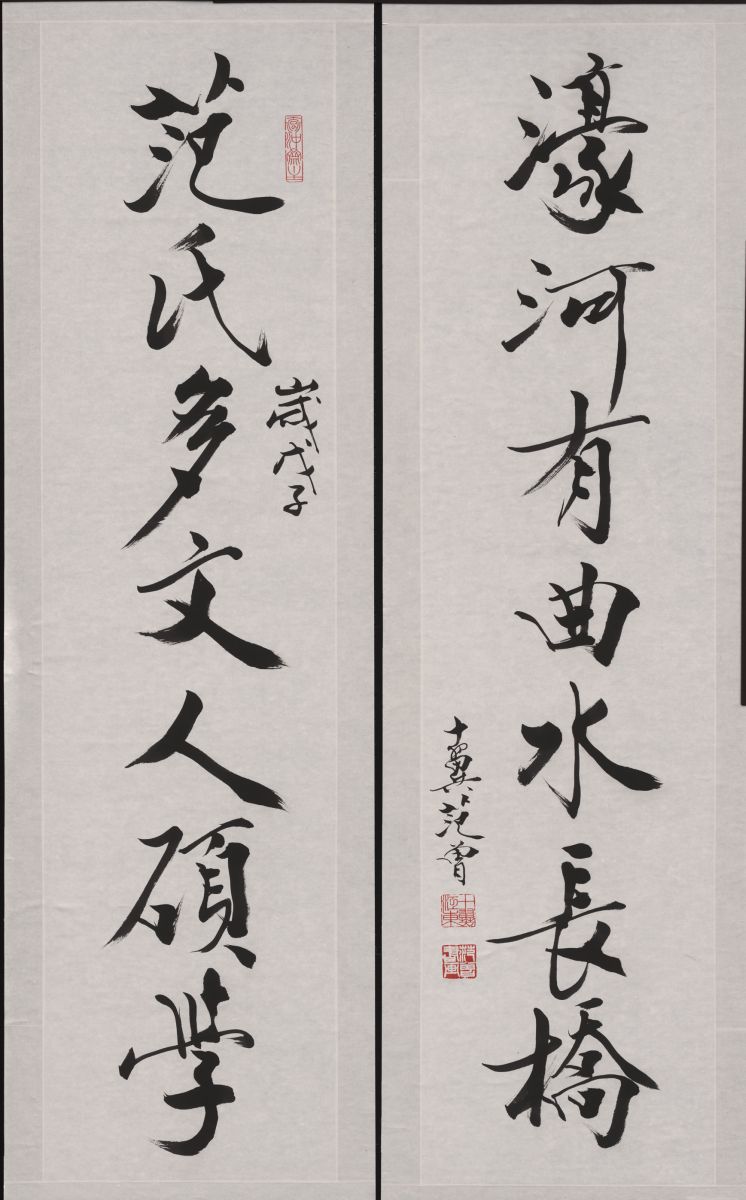 范氏多文人碩學
歲戊子
濠河有曲水長橋
十翼范曾
十翼江東